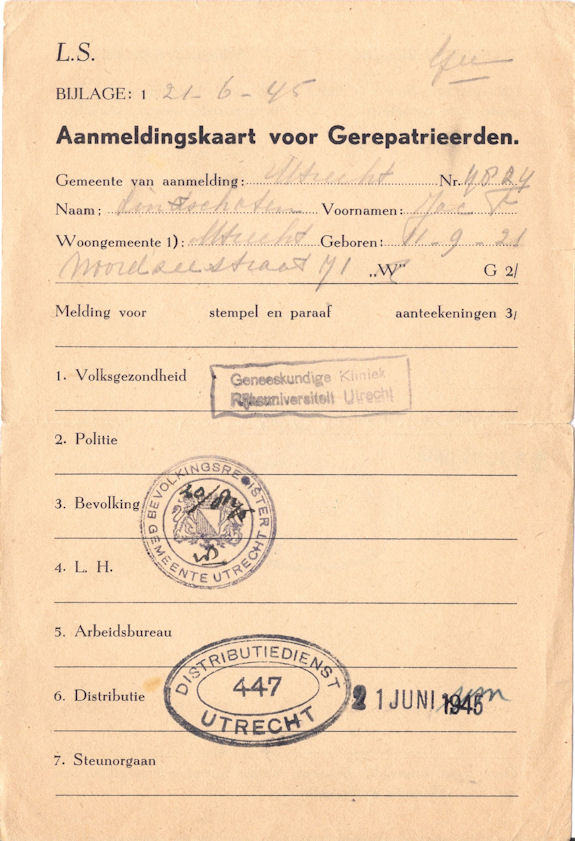 L.S.
BIJLAGE: 1 21-6-45
Aanmeldingskaart voor Gerepatrieerden.
Gemeente van aanmelding: Utrecht Nr. 4824
Naam: Voornamen: Jac
Woongemeente 1): Utrecht Geboren: 11-9-21
Noordzeestraat „W” G 2/
Melding voor stempel en paraaf aanteekeningen 3/
1. Volksgezondheid
Geneeskundige Kliniek
Rijksuniversiteit Utrecht
2. Politie
3. Bevolking
BEVOLKINGSREGISTER
GEMEENTE UTRECHT
4. L. H.
5. Arbeidsbureau
6. Distributie
DISTRIBUTIEDIENST
447
UTRECHT
21 JUNI 1945
7. Steunorgaan